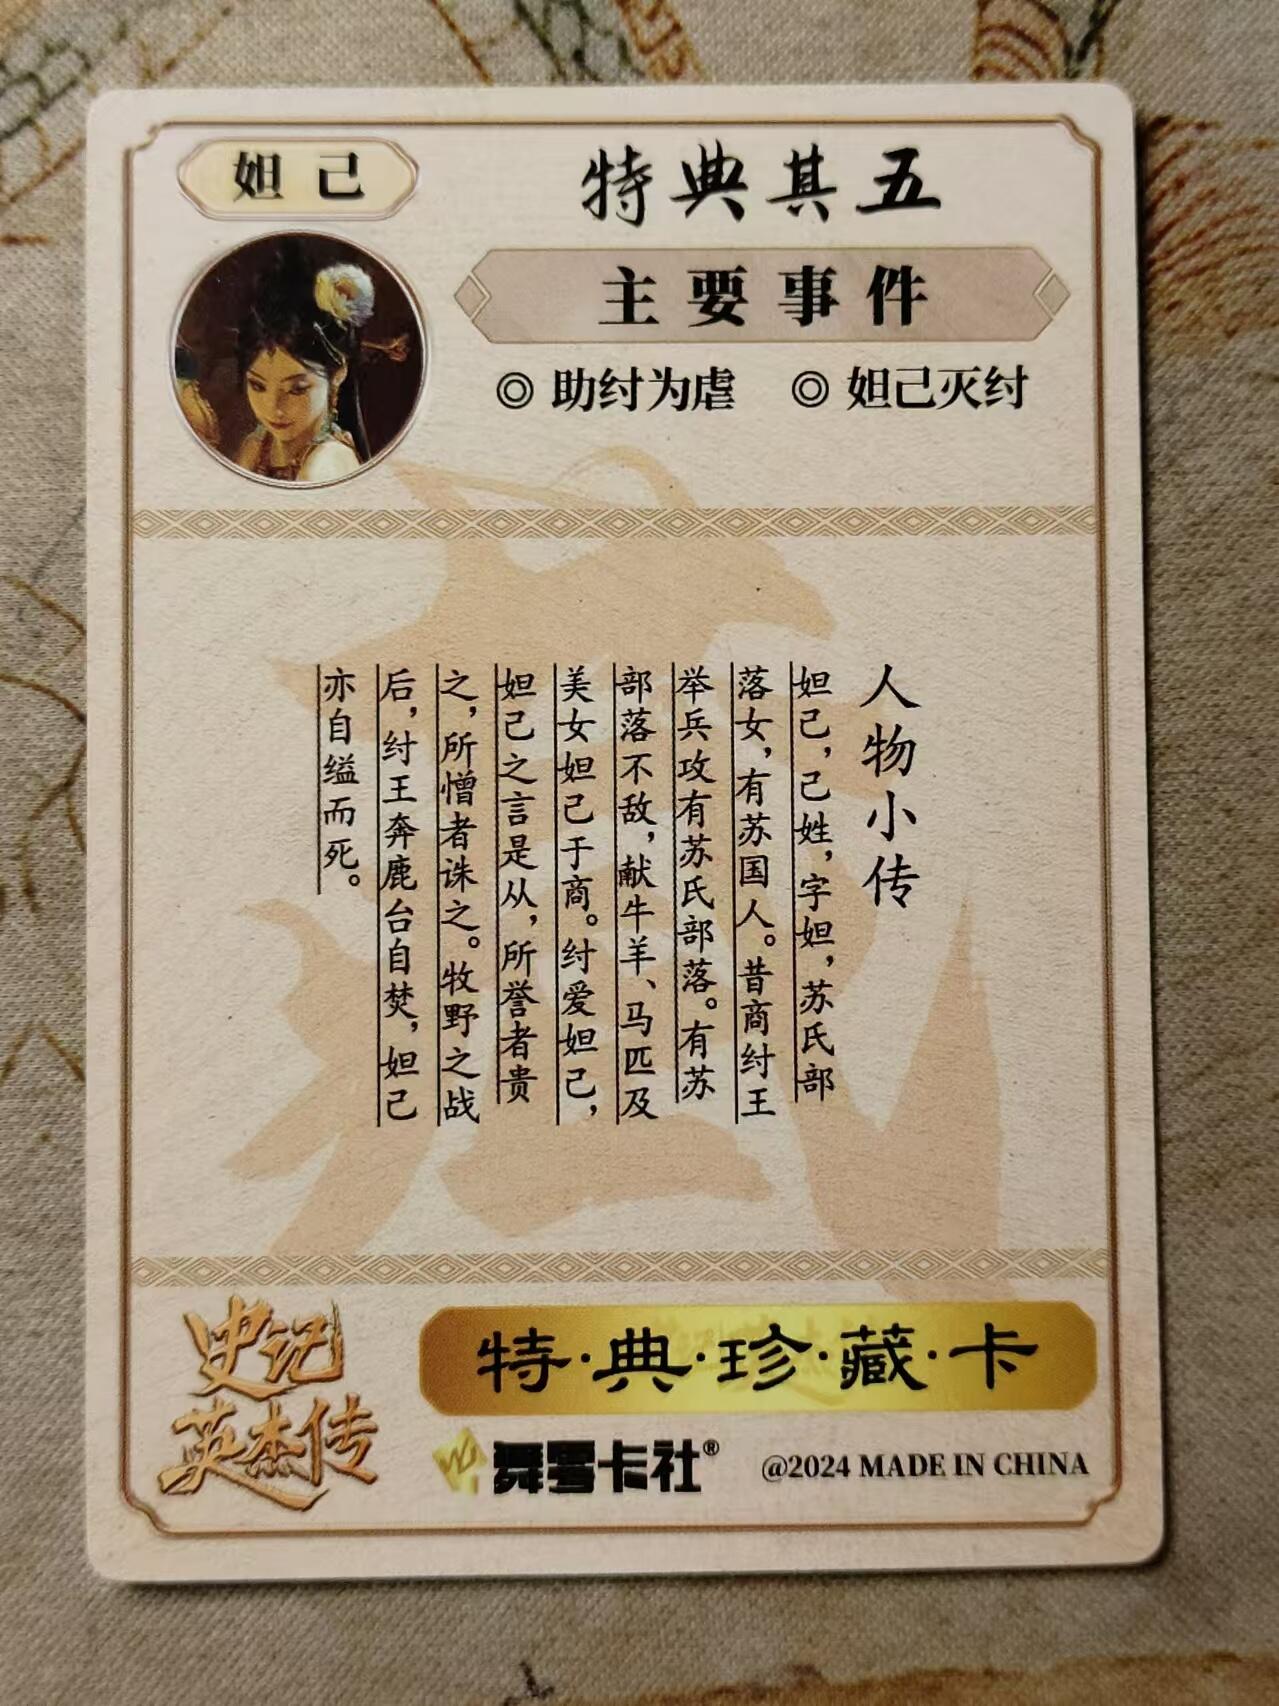 妲己
特典其五
主要事件
◎ 助纣为虐 ◎ 妲己灭纣
人物小传
妲己，己姓，字妲，苏氏部
落女，有苏国人。昔商纣王
举兵攻有苏氏部落。有苏
部落不敌，献牛羊、马匹及
美女妲己于商。纣爱妲己，
妲己之言是从，所誉者贵
之，所憎者诛之。牧野之战
后，纣王奔鹿台自焚，妲己
亦自缢而死。
史记
英杰传
特·典·珍·藏·卡
舞雩卡社®
@2024 MADE IN CHINA